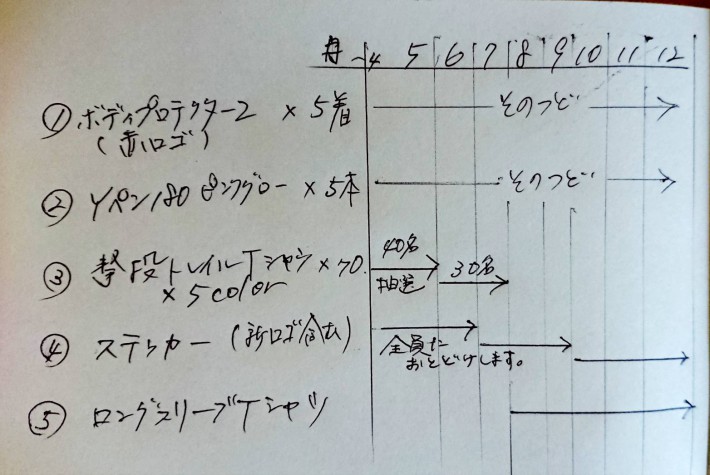 月 ~4 5 6 7 8 9 10 11 12
① ボディプロテクター2 × 5着 そのつど
(赤ロゴ)
② Yペン180 ピングロー × 5本 そのつど
40名 30名
③ トレイルTシャツ × 70. 抽選
× 5color
④ ステッカー (新ロゴ含む) 全員に
おとどけします。
⑤ ロングスリーブTシャツ